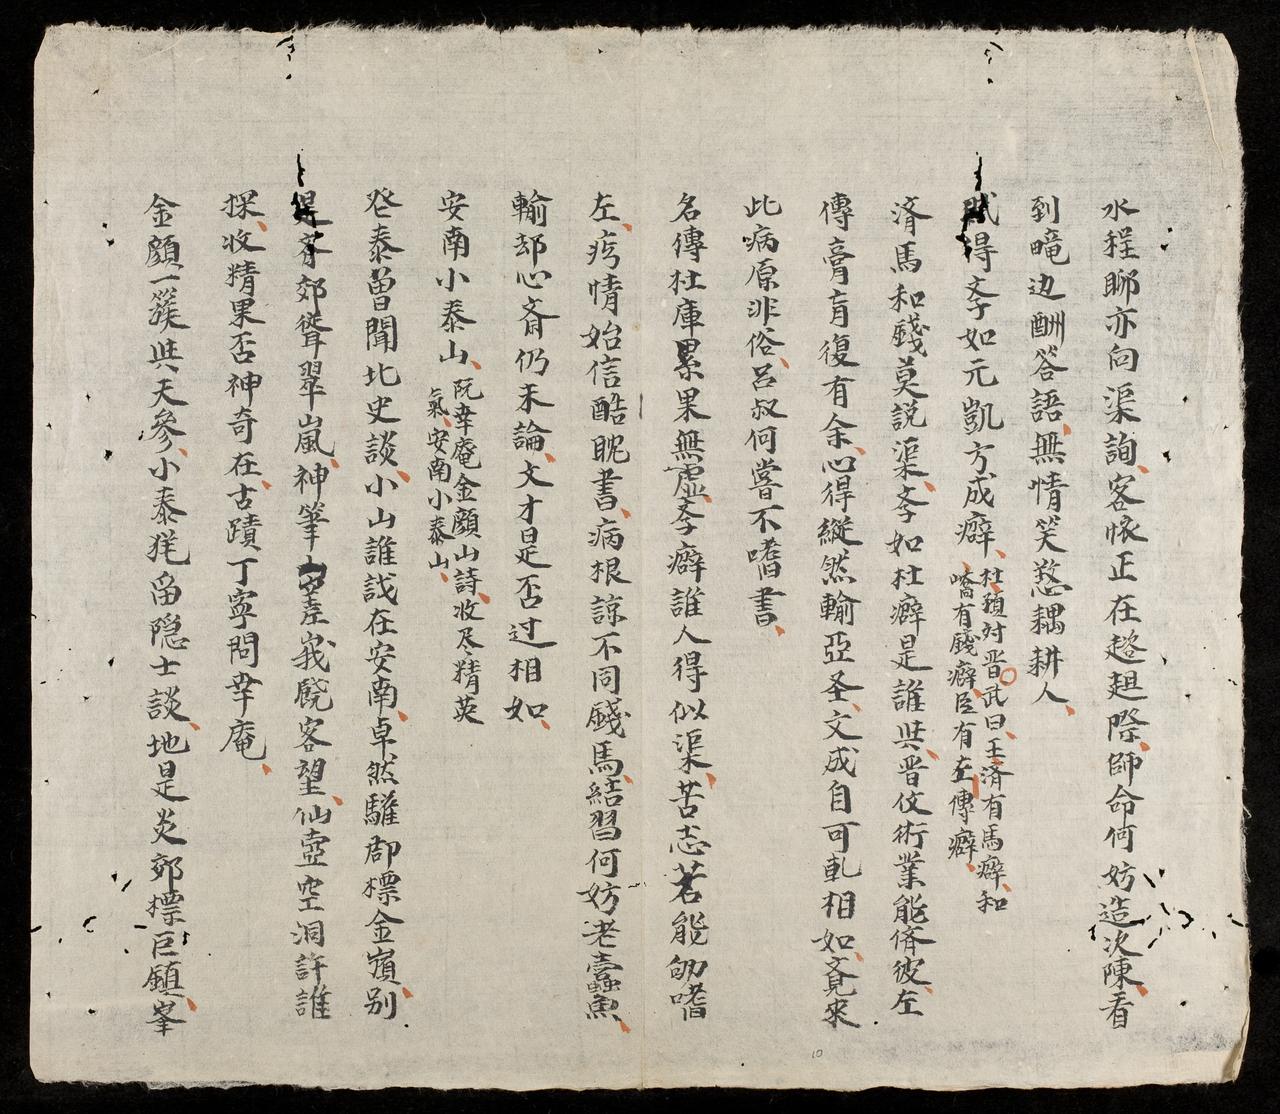 水程聊亦向渠詢客懷正在趑趄際師命何妨造次陳看
到疃边酬答語無情笑憗耦耕人
賦得孝如元凱方成癖
杜預対晋武曰王済有馬癖和
嶠有錢癖臣有左傳癖
済馬和錢莫説渠孝如杜癖是誰㒷晋伩術業能偦彼左
傳膏肓復有余心得縱然輸亞圣文成自可軋相如斉覓來
此病原非俗吕叔何嘗不嗜書
名傳杜庫累果無虛孝癖誰人得似渠苦志若能劬嗜
左疞情始信酷耽書病根諒不同錢馬結習何妨老蠹魚
輸却心斉仍未論文才是否过相如
安南小泰山
阮幸庵金顔山詩收尽精英
氣安南小泰山
癸泰曽聞北史談小山誰戓在安南卓然驩郡標金嶺别
是斉郊聳翠嵐神筆嵳峩㕧客望仙壺空洞許誰
探收精果否神奇在古蹟丁寧問幸庵
金顔一簇㒷天參小泰㹩畱隐士談地是炎郊標巨鎮峯